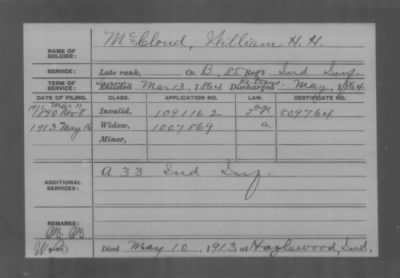 NAME OF SOLDIER: McCloud, William H. H.
SERVICE: Late rank, Co. B, 85 Reg't Ind Inf.
TERM OF SERVICE: Enlisted Mar 13, 1864 Discharged May, 1864
DATE OF FILING. CLASS. APPLICATION NO. LAW. CERTIFICATE NO.
1890 Invalid, 1091162 809764
1913 May 16 Widow, 1007869 a
Minor,
ADDITIONAL SERVICES: A 33 Ind Inf.
REMARKS:
Died May 10, 1913 at Hazlewood, Ind.